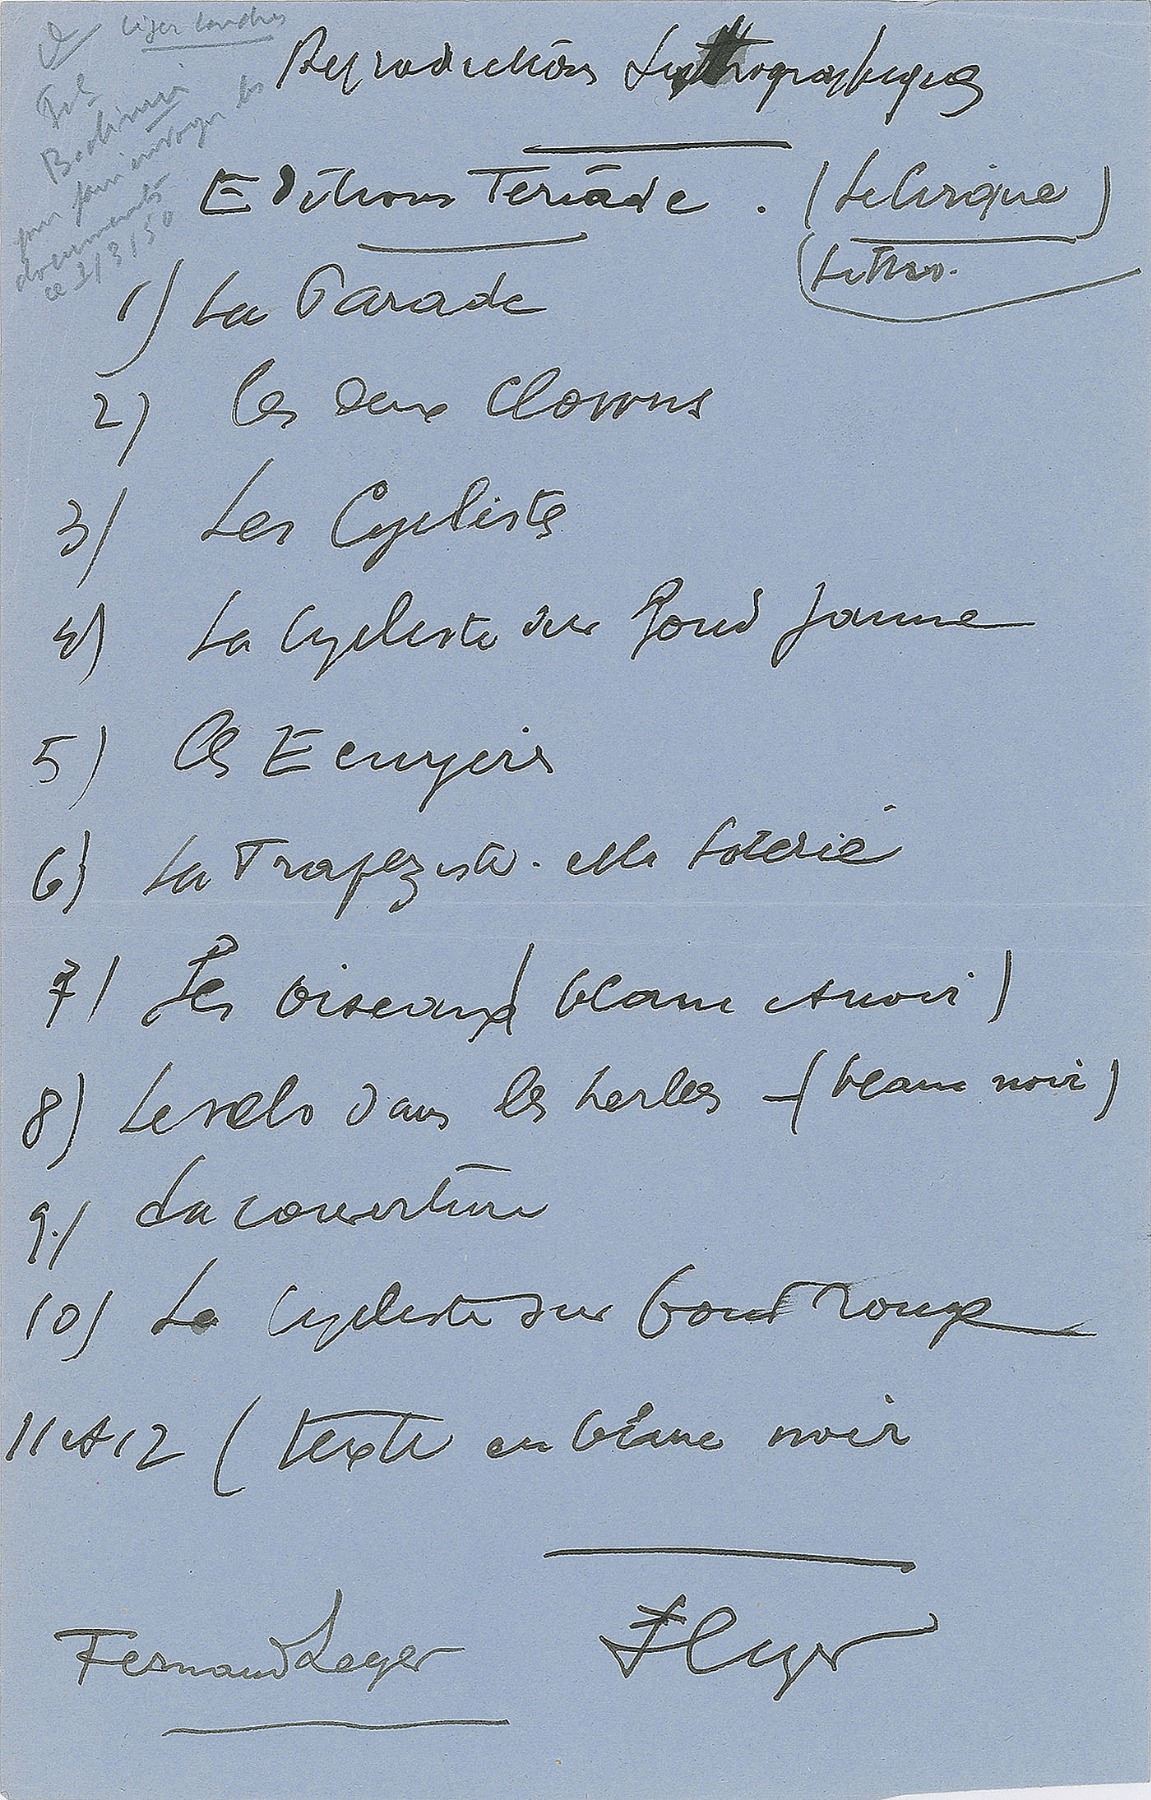 Leger Londres
Tel
pour faire envoyer les
documents
ce 2/3/50
Reproductions Lithographiques
Editions Teriade. (Le Cirque)
(Litho.
1) La Parade
2) les deux Clowns
3/ Les Cyclistes
4) La Cycliste sur Fond Jaune
5) les Ecuyers
6) La Trapeziste. et la Loterie
7/ Les Oiseaux (blanc et noir)
8) Le velo dans les herbes - (blanc noir)
9./ La couverture
10) La Cycliste sur fond rouge
11 et 12 ( texte en blanc noir
Fernand Leger
FLeger